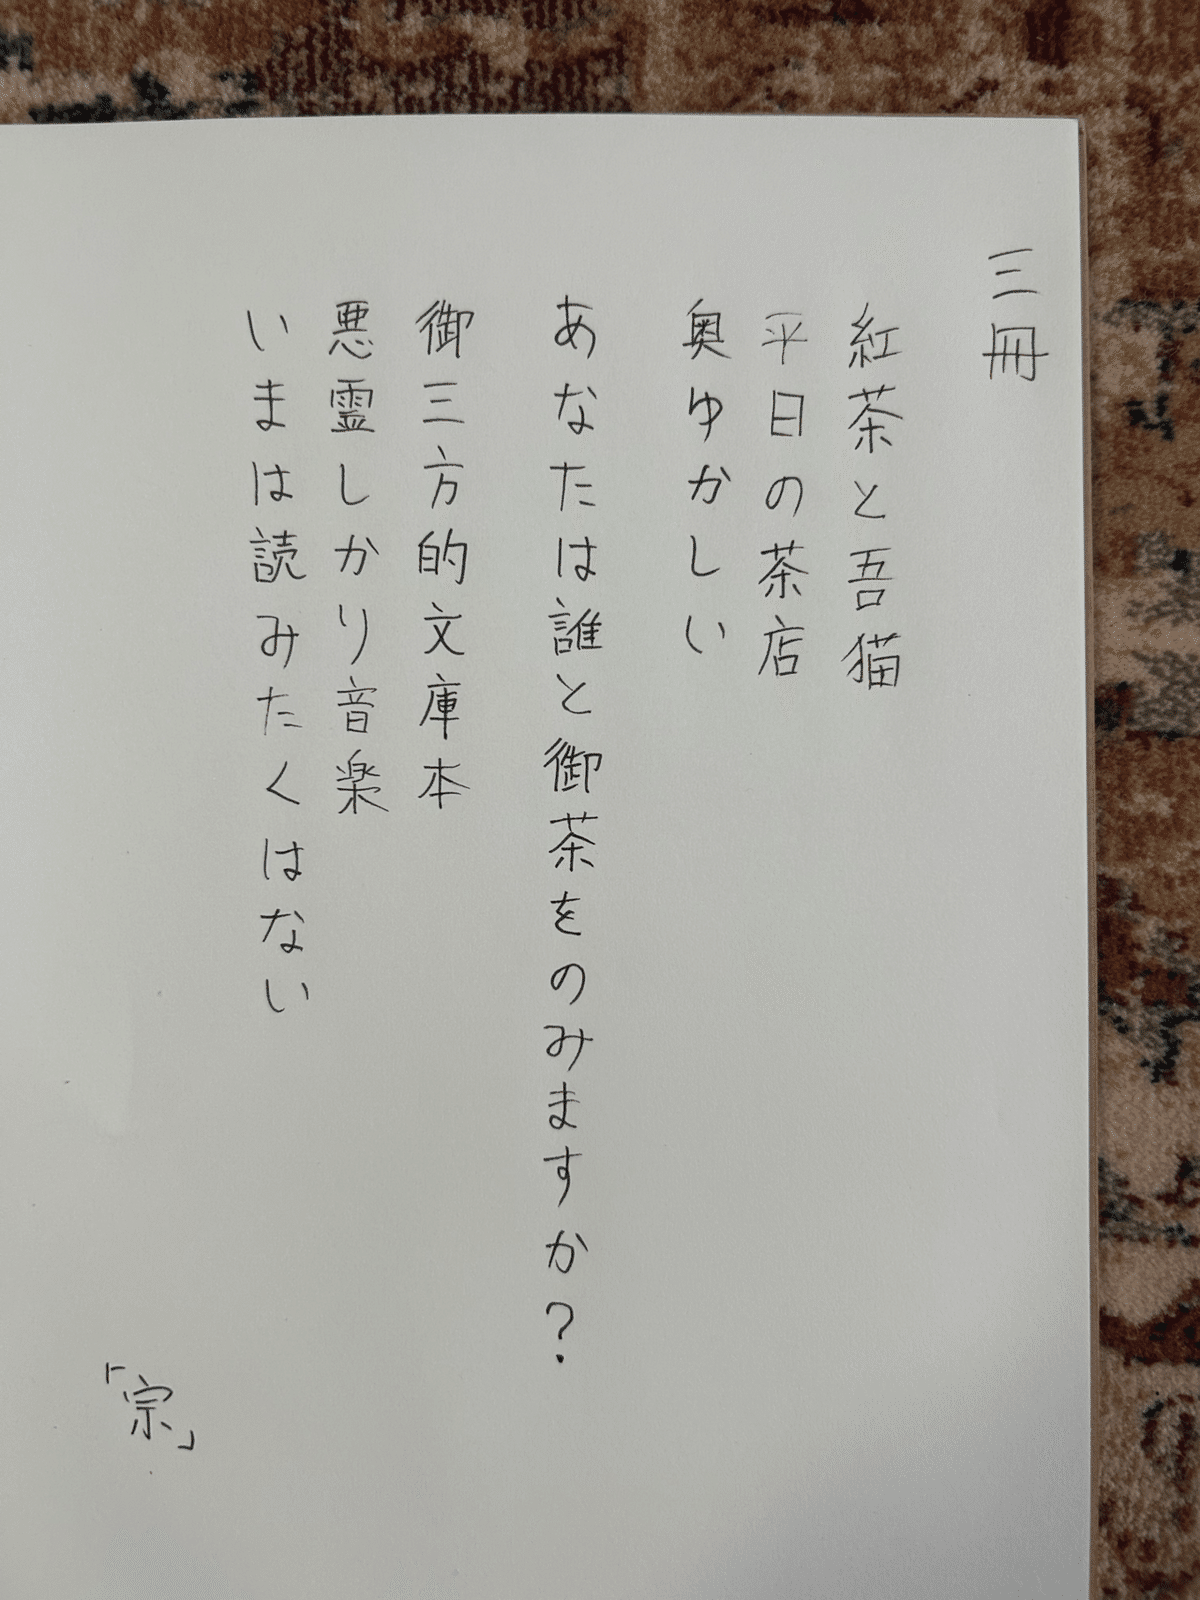 三冊
紅茶と吾猫
平日の茶店
奥ゆかしい
あなたは誰と御茶をのみますか?
御三方的文庫本
悪霊しかり音楽
いまは読みたくはない
「宗」